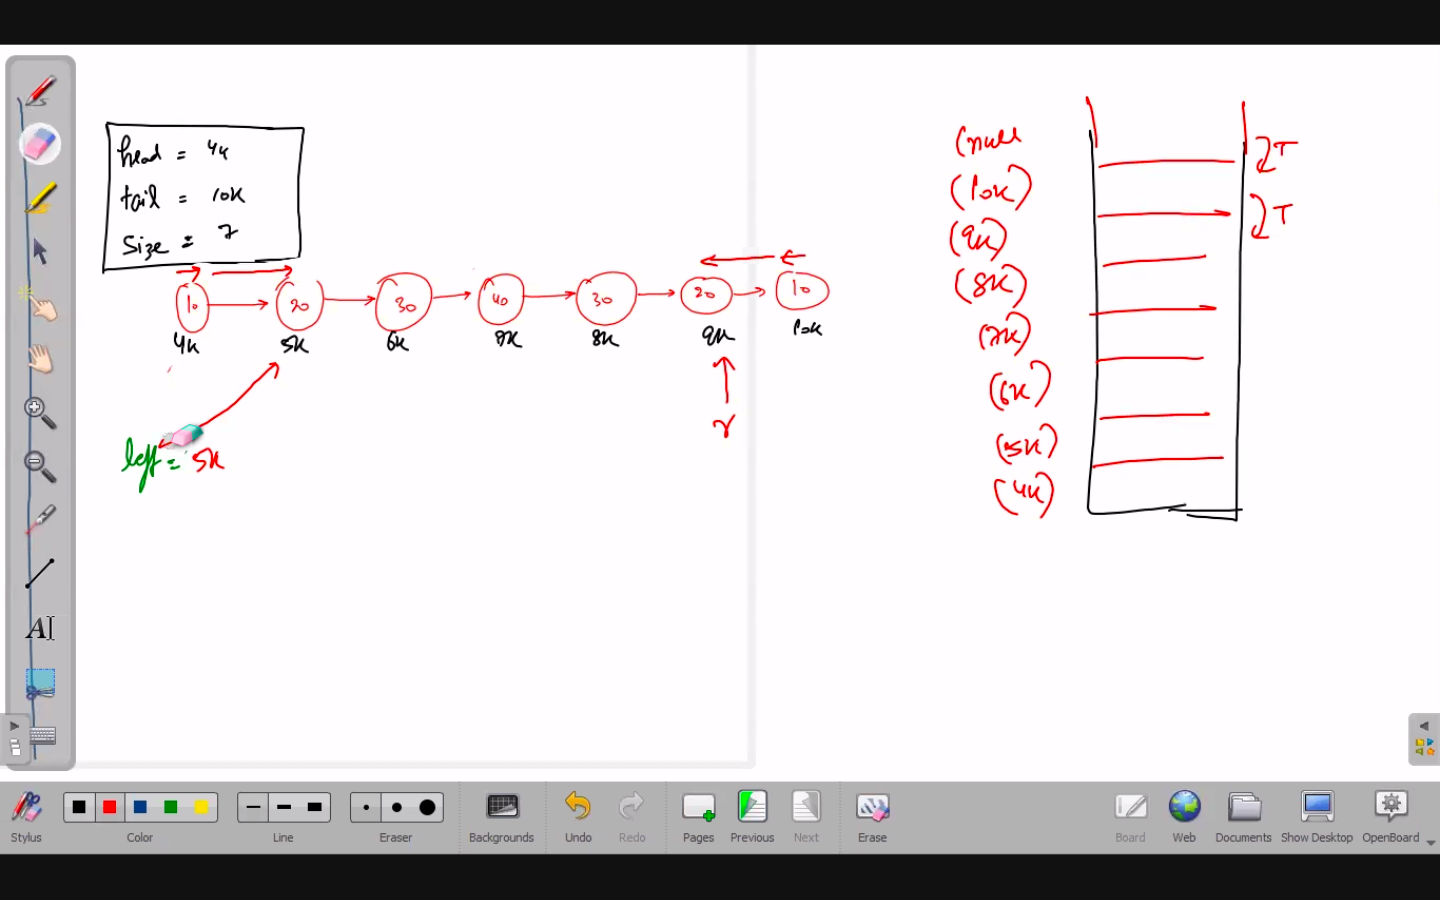 head = 4k
tail = 10k
size = 7
10 20 30 40 30 20 10
4k 5k 6k 7k 8k 9k 10k
r
left = 5k
(null
(10k)
(9k)
(8k)
(7k)
(6k)
(5k)
(4k)
T
T
A
Stylus Color Line Eraser Backgrounds Undo Redo Pages Previous Next Erase Board Web Documents Show Desktop OpenBoard